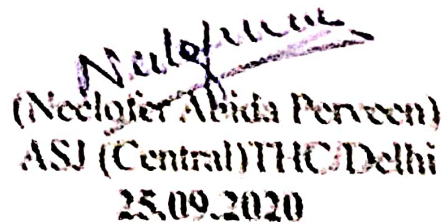 Neelofer
(Neelofer Abida Perveen)
ASJ (Central)THC/Delhi
25.09.2020